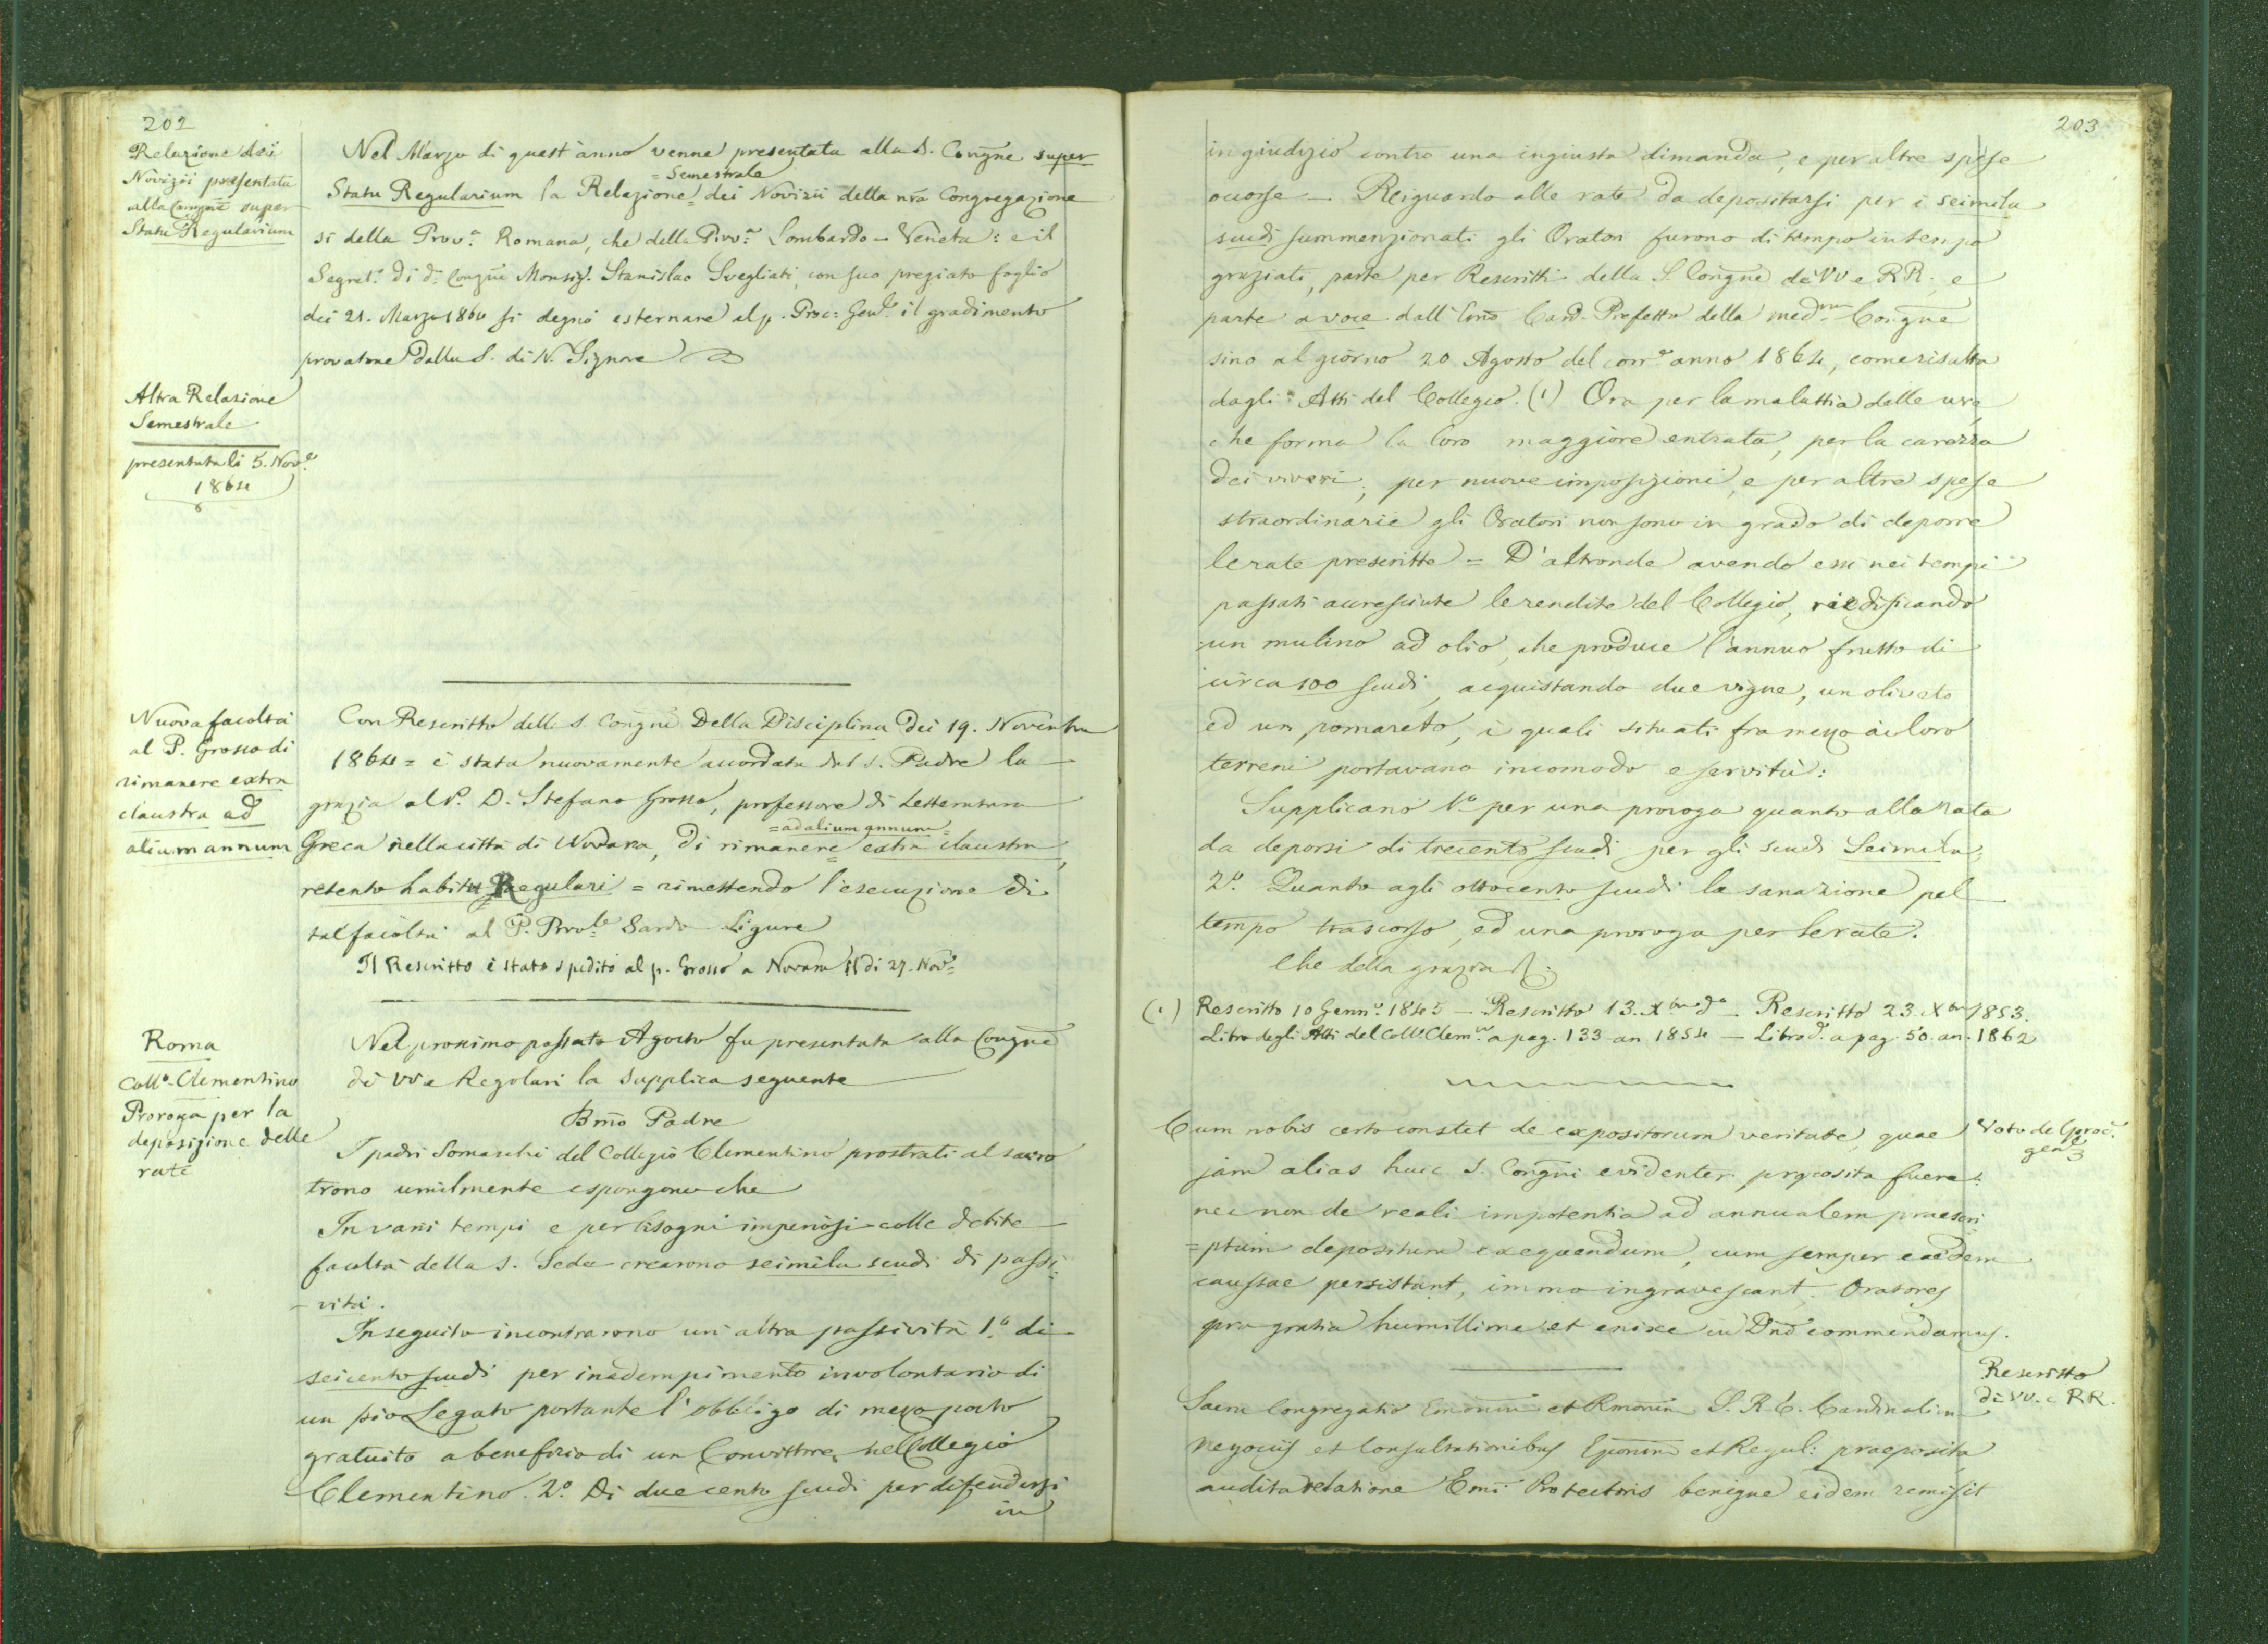 202
Relazione dei
Novizii presentata
alla Congne super
Statu Regularium
Nel Marzo di quest'anno venne presentata alla S. Congne super
= Semestrale
Statu Regularium la Relazione = dei Novizii della nra Congregazione
si della Prova Romana, che della Prova Lombardo-Veneta: e il
Segreto di da Congne Monsigr. Stanislao Svegliati, con suo pregiato foglio
dei 21. Marzo 1864 si degnò esternare al p. Proc: Genle il gradimento
provatone dalla S. di N. Signore
Altra Relazione
Semestrale
presentata li 5. Nove
1864
Nuova facoltà
al P. Grosso di
rimanere extra
claustra ad
alium annum
Con Rescritto della S. Congne Della Disciplina dei 19. Novembre
1864 = è stata nuovamente accordata dal S. Padre la
grazia al P. D. Stefano Grosso, professore di Letteratura
= ad alium annum =
Greca nella città di Novara, di rimanere = extra claustra,
retento habitu Regulari = rimettendo l'esecuzione di
tal facoltà al P. Provle Sardo-Ligure
Il Rescritto è stato spedito al p. Grosso a Novara il dì 27. Nove
Roma
Collo Clementino
Proroga per la
deposizione delle
rate
Nel prossimo passato Agosto fu presentata alla Congne
dei VV e Regolari la supplica seguente
Bmo Padre
I padri Somaschi del Collegio Clementino prostrati al sacro
trono umilmente espongono che
In varii tempi e per bisogni imperiosi colle debite
facoltà della S. Sede crearono seimila scudi di passi-
-vità.
In seguito incontrarono un'altra passività 1o di
seicento scudi per inadempimento involontario di
un pio Legato portante l'obbligo di mezzo posto
gratuito a benefizio di un Convittore nel Collegio
Clementino. 2o Di duecento scudi per difendersi
in
203
in giudizio contro una ingiusta dimanda, e per altre spese
occorse - Reiguardo alle rate da depositarsi per i seimila
scudi summenzionati gli Oratori furono di tempo in tempo
graziati, parte per Rescritti della S. Congne de VV e RR. e
parte a voce dall'Emo Card. Prefetto della medma Congne
sino al giorno 20 Agosto del corre anno 1864, come risulta
dagli Atti del Collegio. (1) Ora per la malattia delle uve
che forma la loro maggiore entrata, per la carezza
dei viveri, per nuove imposizioni, e per altre spese
straordinarie gli Oratori non sono in grado di deporre
le rate prescritte = D'altronde avendo essi nei tempi
passati accresciute le rendite del Collegio, riedificando
un mulino ad olio, che produce l'annuo frutto di
circa 100 scudi, acquistando due vigne, un oliveto
ed un pomareto, i quali situati frammezzo ai loro
terreni portavano incomodo e servitù:
Supplicano 1o per una proroga quanto alla rata
da deporsi di trecento scudi per gli scudi Seimila;
2o. Quanto agli ottocento scudi la sanazione pel
tempo trascorso, ed una proroga per le rate.
Che della grazia
(1) Rescritto 10 Genno 1845 - Rescritto 13. Xbre do - Rescritto 23. Xbre 1853.
Libro degli Atti del Collo Clemno a pag. 133 an 1854 - Libro d. a pag. 50. an. 1862
Cum nobis certo constet de expositorum veritate, quae
jam alias huic S. Congni evidenter proposita fuere:
nec non de reali impotentia ad annualem praescri
=ptum depositum exequendum, cum semper eaedem
caussae persistant, immo ingravescant, Oratores
pro gratia humillime et enixe in Dno commendamus.
Voto del Proc.
genle
Rescritto
di VV. e RR.
Sacra Congregatio Emorum et Rmorum S. R. E. Cardinalium
Negociis et Consultationibus Eporum et Regul: praeposita
audita relatione Emi Protectoris benigne eidem remisit